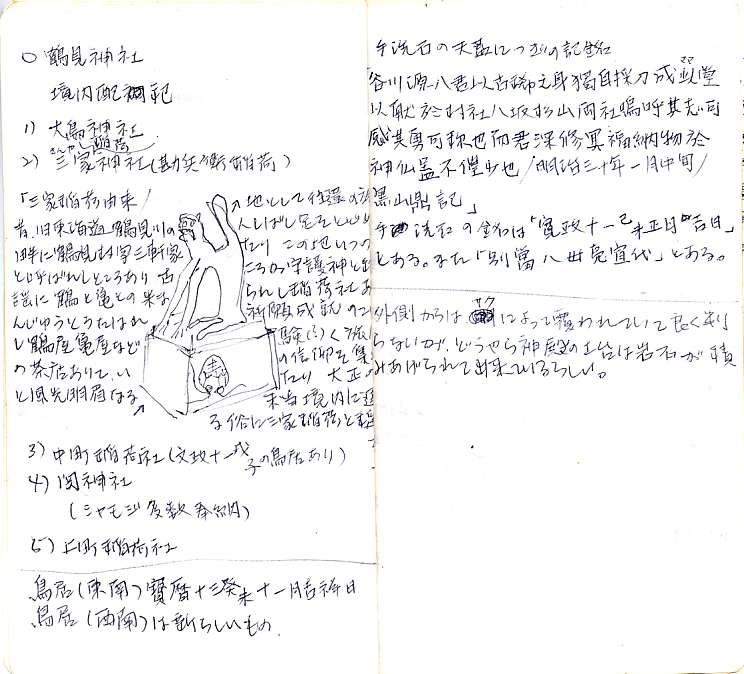 ○ 鶴見神社
境内配祠記
1) 大鳥神社
2) 三家稲荷神社(勘兵衛稲荷)
さんやいなり
「三家稲荷由来/
昔、旧東海道 鶴見川の
畔に鶴見村字三軒家
と呼ばれしところあり 古
謡に 鶴と亀との米な
んじゅうとうたはれ
し 鶴屋亀屋など
の茶店ありて、い
と風光明眉なる
地として往還の旅
人しばし足をとどめ
たり この地いつの
ころか守護神と
られし稲荷社あ
祈願成就の
験く 旅
の信仰を集
たり 大正の
末 当境内に遷
る 俗に三家稲荷と
3) 中町稲荷社(文政十一戊子の鳥居あり)
4) 関神社
(シャモジ多数奉納)
5) 上町稲荷社
鳥居(東南) 寶暦十三癸未十一月吉祥日
鳥居(西南)は新らしいもの
手洗石の天蓋につぎの記銘
谷川源八君以古稀之身獨自採刀成此堂
以献於村社八坂杉山両社嗚呼其志可
感其勇可称也而君深修冥福納物於
神仏蓋不僅少也/明治三十年一月中旬/
黒山鼎記」
手洗石の銘は「寛政十一己未正月吉日」
とある。また「別當八世亮宜代」とある。
外側からはサクによって覆われていて良く判
らないが、どうやら神殿の土台は岩石が積
みあげられて出来ているらしい。